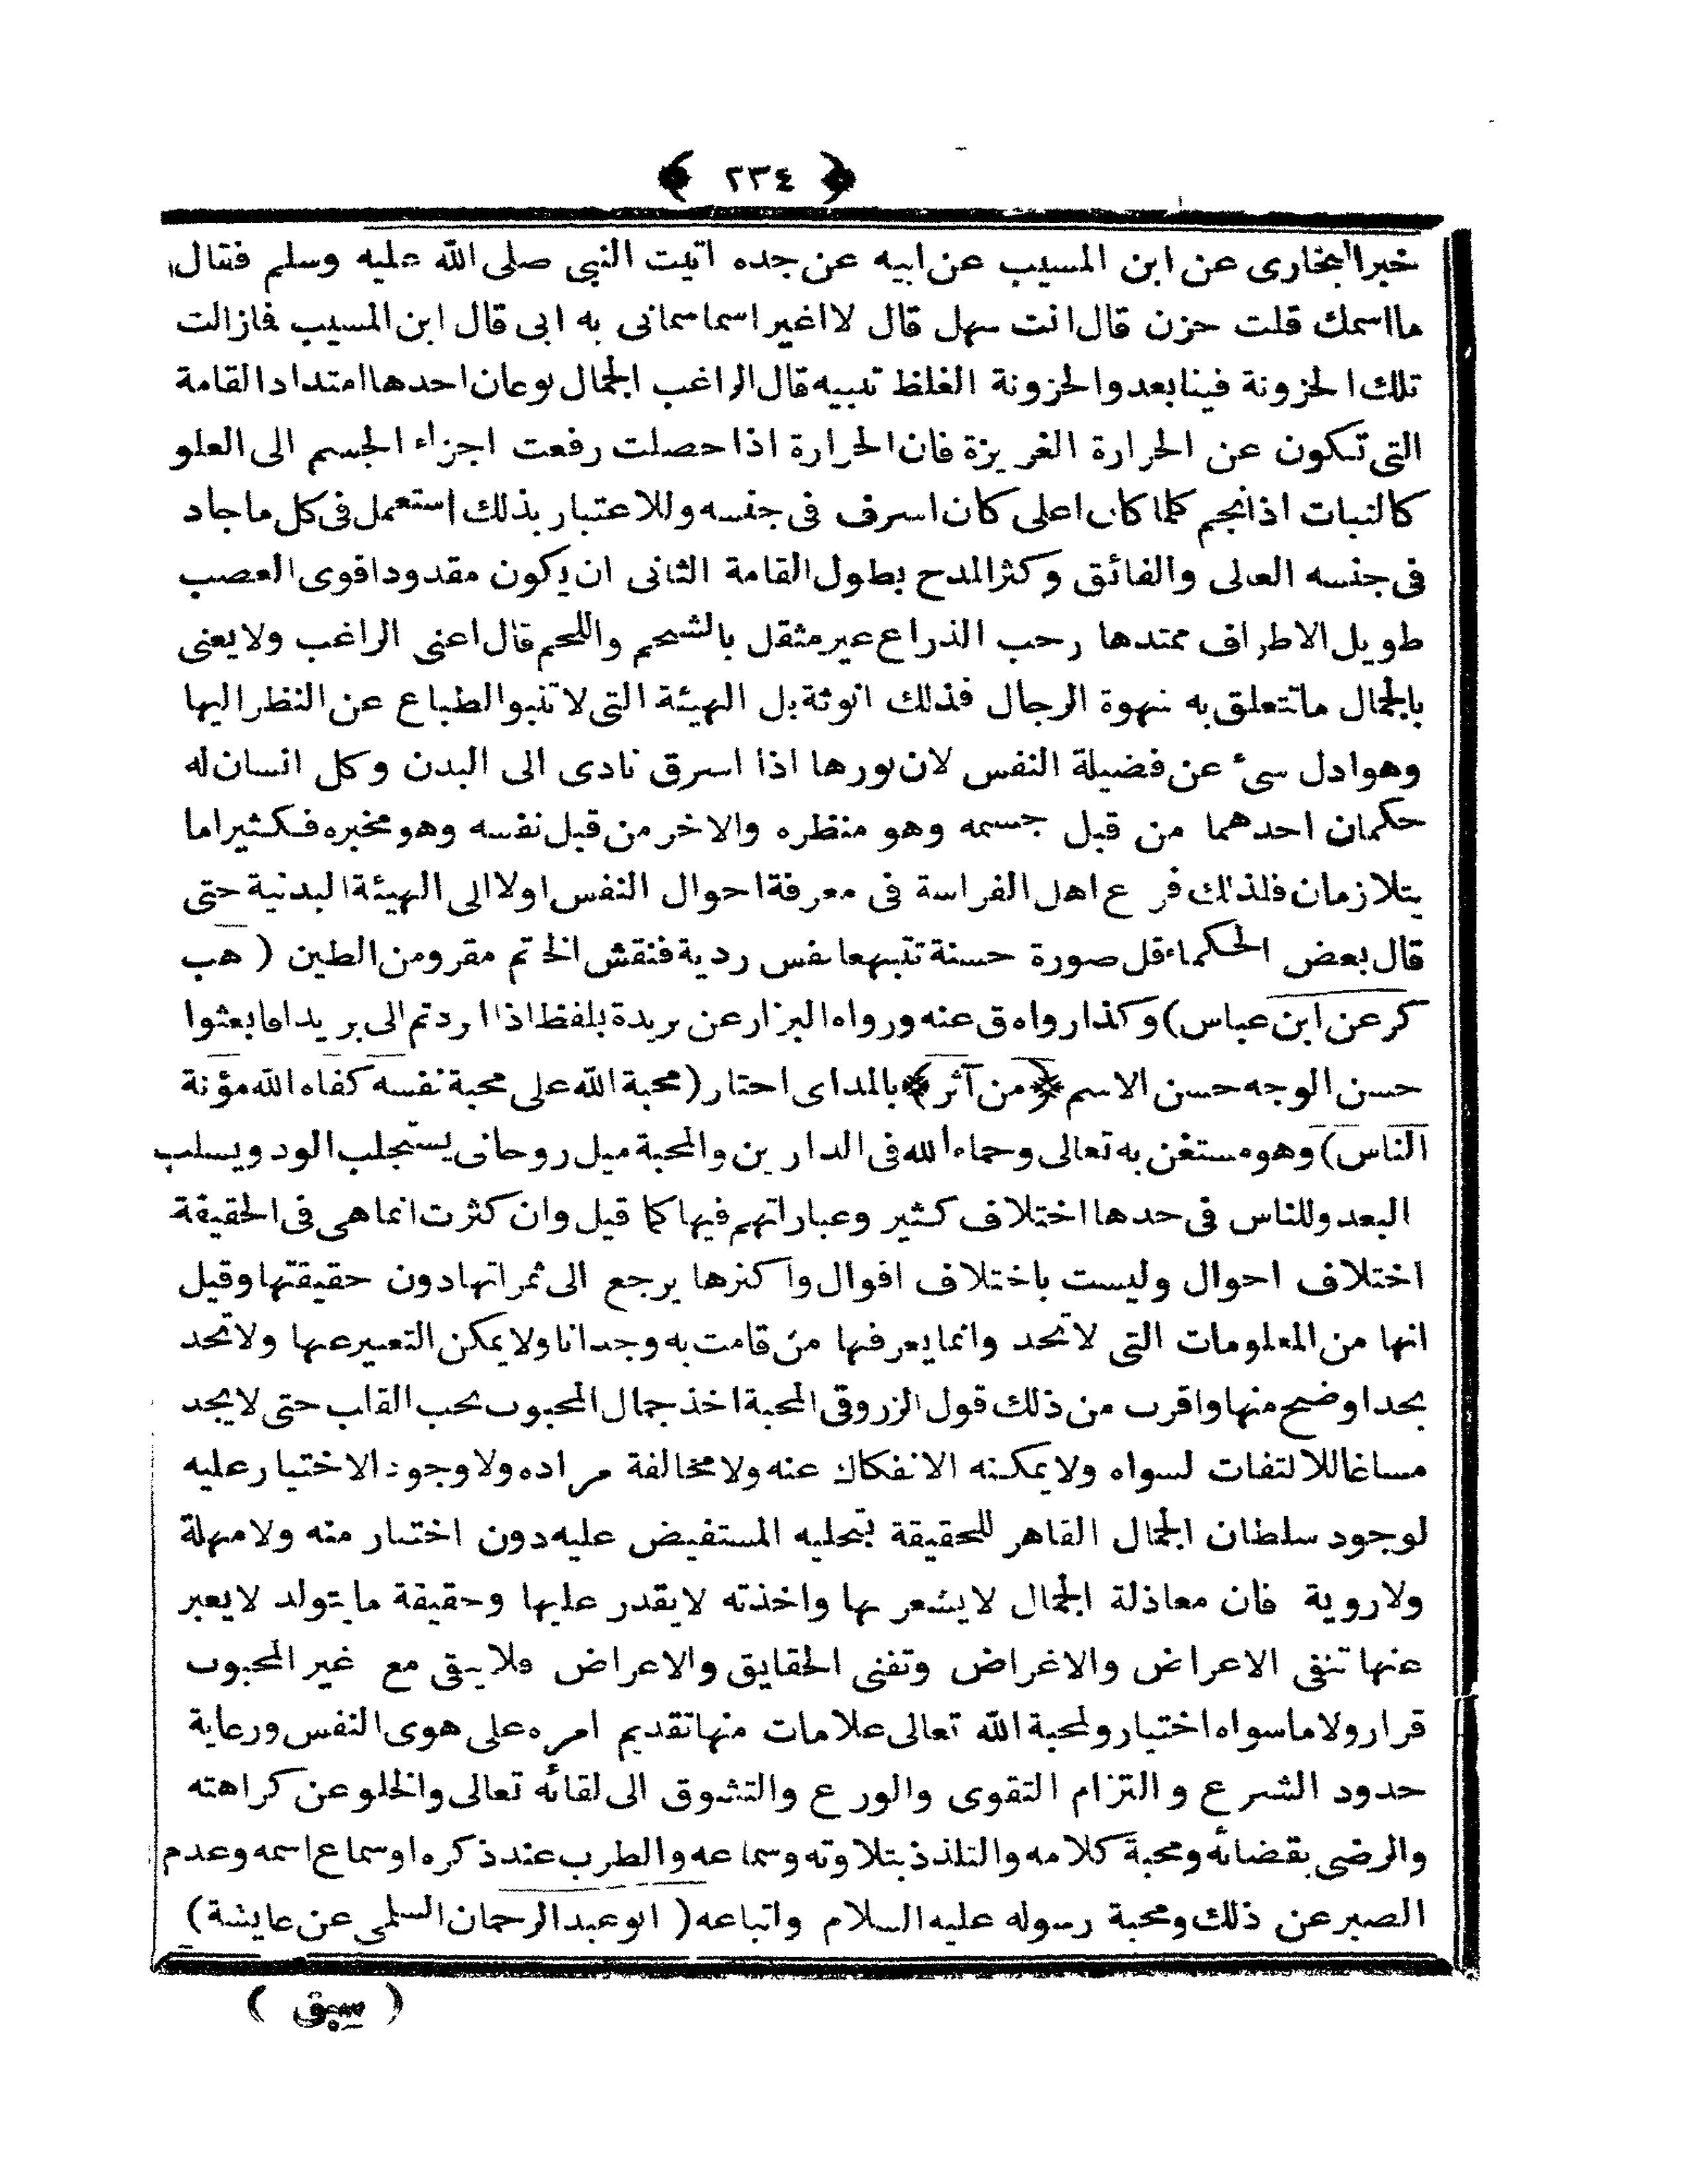 ﴿ ٢٣٤ ﴾
خبر البخارى عن ابن المسيب عن ابيه عن جده اتيت النبى صلى الله عليه وسلم فقال
ما اسمك قلت حزن قال انت سهل قال لا اغير اسما سمانى به ابى قال ابن المسيب فازالت
تلك الحزونة فينا بعد والحزونة الغلظ تنبيه قال الراغب الجمال نوعان احدها امتداد القامة
التى تكون عن الحرارة الغريزة فان الحرارة اذا حصلت رفعت اجزاء الجسم الى العلو
كالنبات اذا نجم كلما كان اعلى كان اسرف فى جنسه وللاعتبار بذلك استعمل فى كل ما جاد
فى جنسه العالى والفائق وكثر المدح بطول القامة الثانى ان يكون مقدودا قوى العصب
طويل الاطراف ممتدها رحب الذراع غير مثقل بالشحم واللحم قال اعنى الراغب ولا يعنى
بالجمال ما تتعلق به شهوة الرجال فذلك انوثة بل الهيئة التى لا تنبو الطباع عن النظر اليها
وهو ادل سىء عن فضيلة النفس لان نورها اذا اسرق نادى الى البدن وكل انسان له
حكمان احدهما من قبل جسمه وهو منظره والاخر من قبل نفسه وهو مخبره فكثيرا ما
يتلازمان فلذلك فرع اهل الفراسة فى معرفة احوال النفس اولا الى الهيئة البدنية حتى
قال بعض الحكماء قل صورة حسنة تتبعها نفس ردية فنقش الختم مقرو من الطين ( هب
كر عن ابن عباس) وكذا رواه ق عنه ورواه البزار عن بريدة بلفظ اذا اردتم الى بريدا فابعثوا
حسن الوجه حسن الاسم ﴿ من آثر ﴾ بالمد اى احتار (محبة الله على محبة نفسه كفاه الله مؤنة
الناس) وهو مستغن به تعالى وحماه الله فى الدارين والمحبة ميل روحانى يستجلب الود ويسلب
البعد وللناس فى حدها اختلاف كثير وعباراتهم فيها كما قيل وان كثرت انما هى فى الحقيقة
اختلاف احوال وليست باختلاف اقوال واكثرها يرجع الى ثمراتها دون حقيقتها وقيل
انها من المعلومات التى لا تحد وانما يعرفها من قامت به وجدانا ولا يمكن التعبير عنها ولا تحد
بحد اوضح منها واقرب من ذلك قول الزروقى المحبة اخذ جمال المحبوب بحب القلب حتى لا يجد
مساغا للالتفات لسواه ولا يمكنه الانفكاك عنه ولا مخالفة مراده ولا وجود الاختيار عليه
لوجود سلطان الجمال القاهر للحقيقة بتجليه المستفيض عليه دون اختيار منه ولا مهلة
ولا روية فان معاذلة الجمال لا يشعر بها واخذته لا يقدر عليها وحقيقة ما يتولد لا يعبر
عنها تنفى الاعراض والاغراض وتفنى الحقايق والاعراض فلا يبقى مع غير المحبوب
قرار ولا ما سواه اختيار ولمحبة الله تعالى علامات منها تقديم امره على هوى النفس ورعاية
حدود الشرع والتزام التقوى والورع والتشوق الى لقائه تعالى والخلو عن كراهته
والرضى بقضائه ومحبة كلامه والتلذذ بتلاوته وسماعه والطرب عند ذكره او سماع اسمه وعدم
الصبر عن ذلك ومحبة رسوله عليه السلام واتباعه ( ابو عبد الرحمان السلمى عن عايشة)
( سبق )